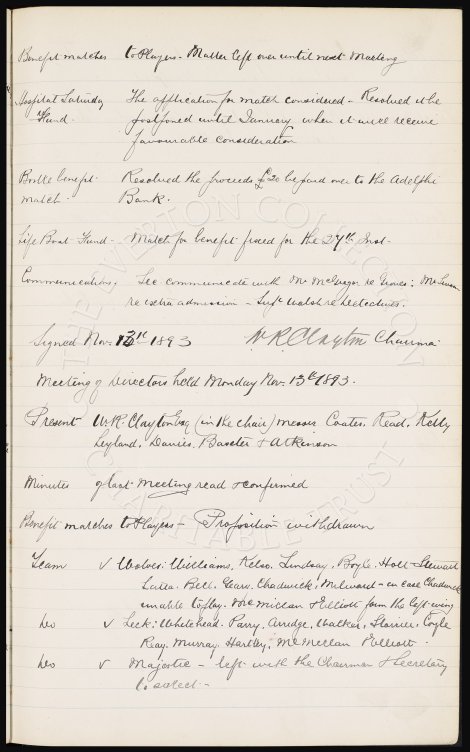 Benefit matches to Players. Matter left over until next Meeting
Hospital Saturday The application for match considered - Resolved it be
Fund. postponed until January when it will receive
favourable consideration
Bootle benefit Resolved the proceeds £20 be paid over to the Adelphi
match. Bank.
Life Boat Fund - Match for benefit fixed for the 27th Inst
Communications. Sec communicate with Mr McGregor re Groves; Mr
re extra admission - Supt Walsh re Detectives.
Signed Nov. 13th 1893 W.R. Clayton Chairman
Meeting of Directors held Monday Nov. 13th 1893.
Present W.R. Clayton Esq (in the chair) Messrs Coates, Read, Kelly
Leyland, Davies, Baxter & Atkinson
Minutes of last Meeting read & confirmed
Benefit matches to Players - Proposition withdrawn
Team v Wolves: Williams, Kelso, Lindsay, Boyle, Holt - Stewart
Latta. Bell. Geary. Chadwick, Milward - in case Chadwick
unable to play. McMillan & Elliott form the left wing
Do v Leek: Whitehead. Parry, Arridge, Walker, Storrier, Coyle
Reay. Murray, Hartley, McMillan Elliott.
Do v Majestic - left with the Chairman & Secretary
to select -
THE EVERTON COLLECTION
CHARITABLE TRUST